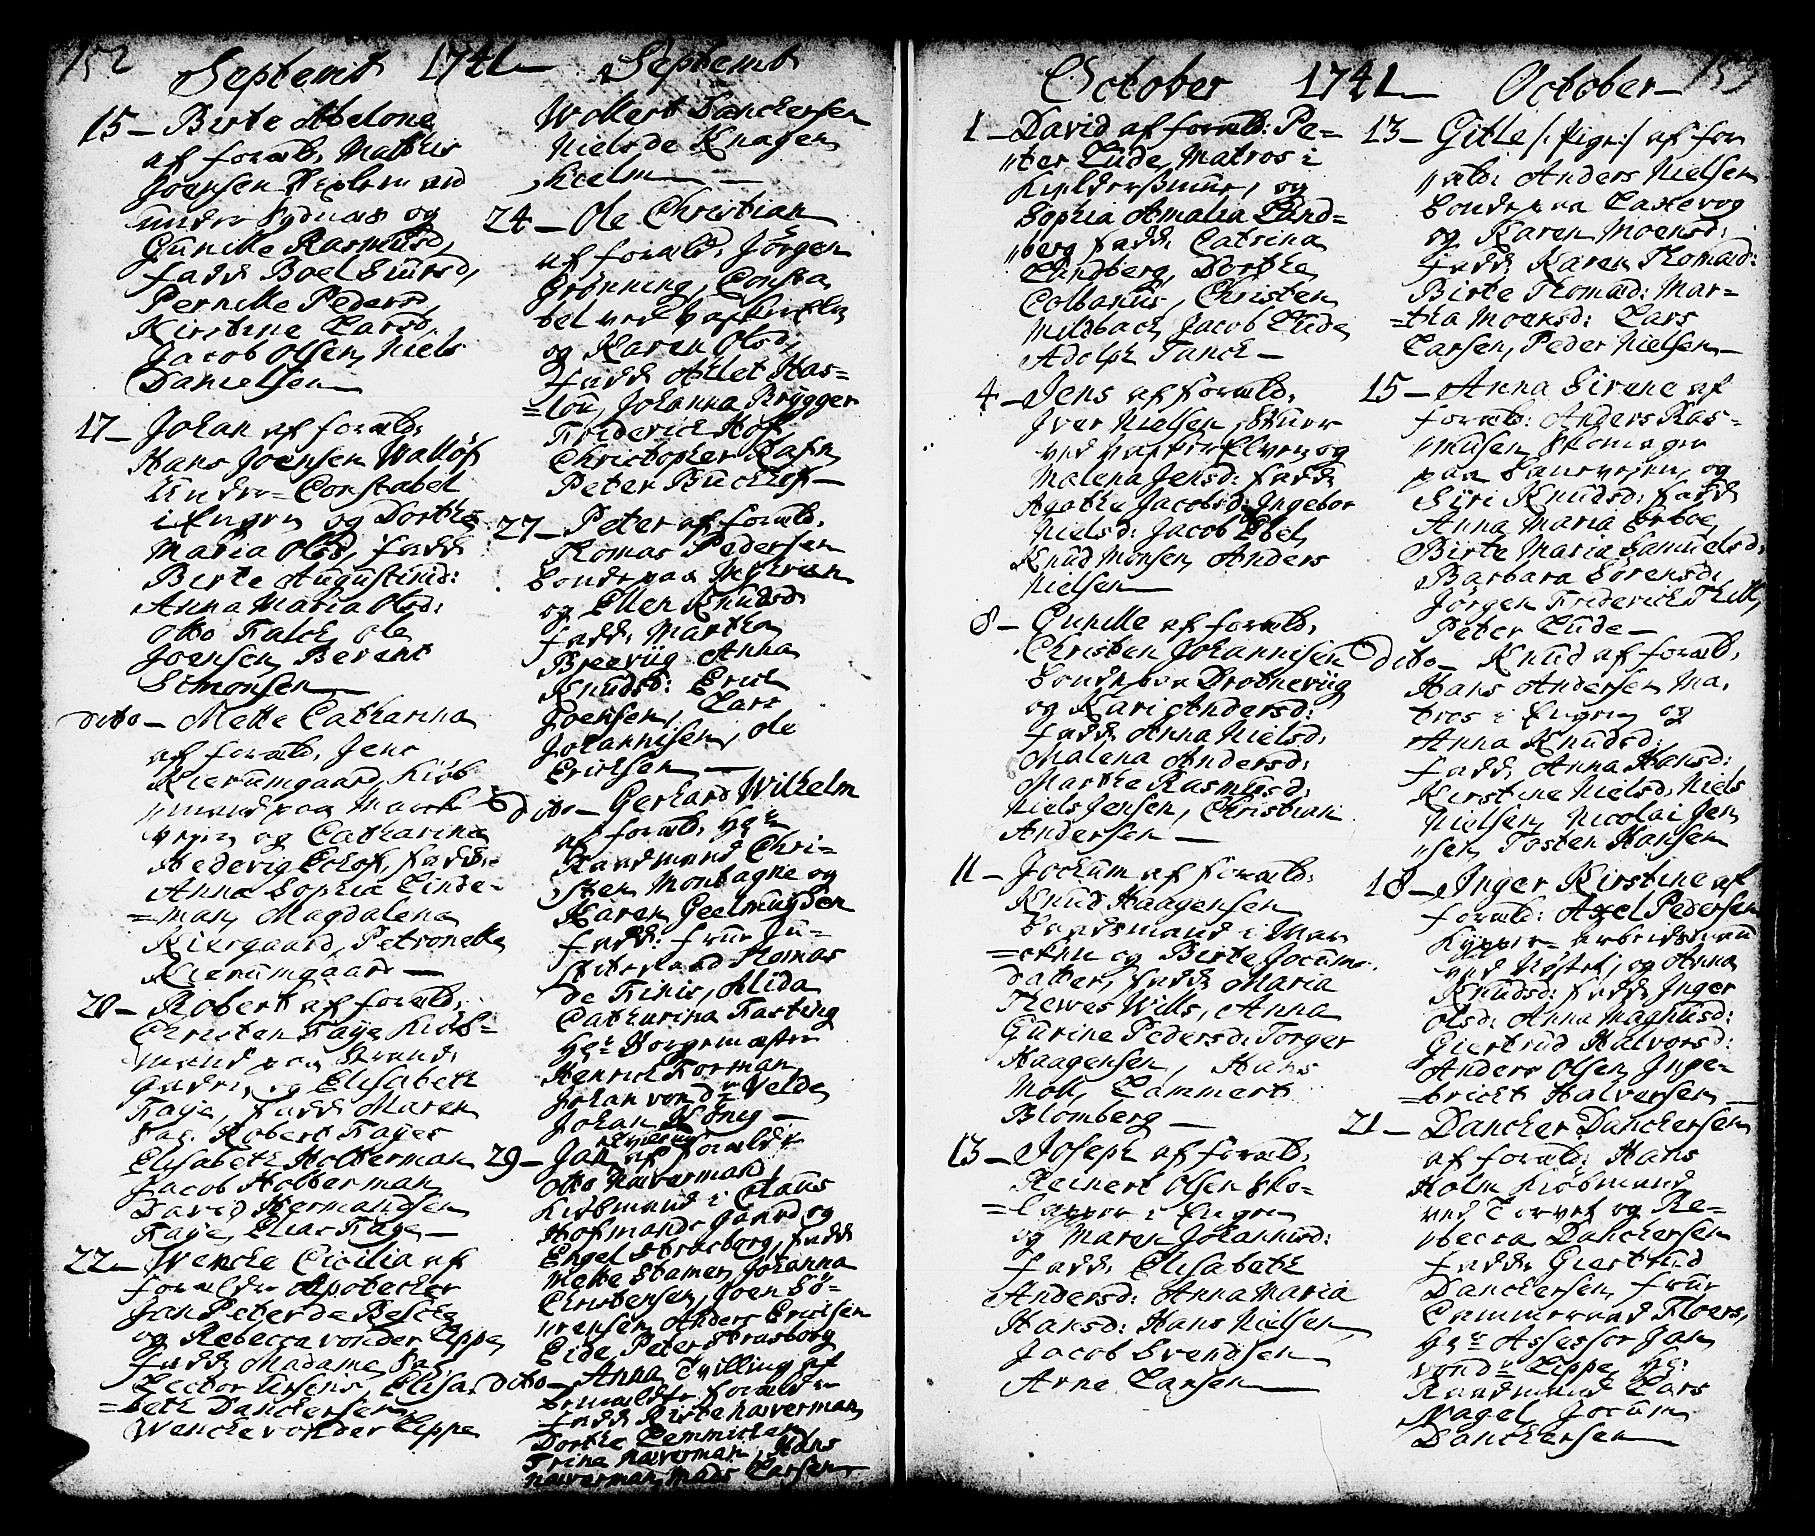 152
Septemb 1741 Septemb
15 – Birte Abelone
af foræld. Mathis
Joensen
under Sydnæs og
Gunille Rasmusd,
fadd Boel Siursd,
Pernille Pedersd,
Kirstine Larsd,
Jacob Olsen, Niels
Danielsen
17 – Johan af foræld.
Hans Joensen Walløf
Under-Constabel
i Engen og Dorthe
Maria Olsd, fadd
Birte Augustinid:
Anna Maria Olsd:
Otto Falch, ole
Joensen, Berent
Simonsen
dito – Mette Catharina
af foræld. Jens
Kierumgaard, Kiøb
mand paa Marche
veien og Catharina
Hedevig Eckhof, fadd.
Anna Sophia Linde-
=man, Magdalena
Kiergaard, Petronelle
Kierumgaard –
20 – Robert af foræld.
Christen Faÿe Kiøb-
mand paa Strand-
gaden, og Elisabeth
Faÿe, fadd Maren
Sal. Robert Faÿes
Elisabeth Holterman
Jacob Holterman
David Hermandsen
Faÿe, Elias Faÿe –
22 – Wenche Cicilia af
forældre Apotecher
Jan Peter de Besche
og Rebecca von der Lippe
fadd Madame Sal.
Lector Arsenis, Elisa
=beth Danckersen
Wencke von der Lippe
Wollert Danckersen
Niels de Knagen
hielm –
24 – Ole Christian
af foræld. Jörgen
Grönning, Consta
bel ved Vagterelv
og Karen Olsd,
fadd Allet Has-
=lou, Johanna Brÿgger
Friderich Hof
Christopher Rafn
Peter Buckhof –
27 – Peter af foræld.
Thomas Pedersen
bonde paa
og Ellen Knudsd
fadd, Martha
Breeviig Anna
Knudsd: Erich
Joensen, Lars
Johannisen, ole
Erichsen –
dito – Gerhard Wilhelm
af foræld. Hr
Raadmand Chri-
sten Montagne og
Karen Geelmuÿden
fadd. frue Ju-
stiteraad Thomas
de Finis, Alida
Catharina Fasting
Hr Borgemæster
Henrich Forman,
Johan von dr Velde,
Johan König –
29 – Jan tvilling af forældr
Otto Næverman,
Kiøbmand i Claus
Hofmands Gaard og
Engel Strasborg, fadd
Mette Stamer, Johanna
Christensen, Joen Sö-
rensen Anders Erichsen
Eide, Peter Strasborg
dito – Anna Tvilling af
bemældte forældre
fadd Birte Næverman,
Dorthe Lemmicher
Trina Næverman, Hans
Næverman, Mads Larsen
153
October 1741 October
1 – David af foræld: Pe-
ter Lude, Matros i
Kieldersmuut, og
Sophia Amalia Lind-
berg fadd. Catrina
Lindberg, Dorthe
Colbanus, Christen
Mildbach, Jacob Lude,
Adolph Fanck –
4 – Jens af foræld.
Iver Nielsen,
ved og
Malena Jensd: fadd
Agathe Jacobsd: Ingebor
Nielsd: Jacob Ebel,
Knud Monsen, Anders
Nielsen
8 – Gunille af foræld.
Christen Johannisen
bonde paa Drotneviig
og Kari Andersd:
fadd. Anna Nielsd,
Malena Andersd:
Marthe Rasmusd:
Niels Jensen, Christian
Andersen –
11 – Jochum af foræld:
Knud Haagensen
bordsmand i Mar
=cken og Birte Jocums
datter, fadd Maria
Thewes Wills, Anna
Gurine Pedersd: Torger
Haagensen, Hans
Moll, Lammert
Blomberg –
13 – Joseph af foræld.
Reinert Olsen Sko-
=lapper i Engen
og Maren Johannisd:
fadd. Elisabeth
Andersd: Anna Maria
Hansd: Hans Nielsen,
Jacob Svendsen
Arne Larsen
13 – Gitle /: Pige:/ af for
æld: Anders Nielsen
bonde paa Laxevog
og Karen Moensd:
fadd. Karen Thomasd:
Birte Thomasd: Mar-
=tha Moensd: Lars
Larsen, Peder Nielsen –
15 – Anna Sirene af
foræld: Anders Ras-
musen Skomager
paa Saurveien, og
Siri Knudsd: fadd
Anna Maria Erboe,
Birte Maria Samuelsd:
Barbara Sörensd,
Jörgen Friderich Thill,
Peter Lude –
dito – Knud af foræld.
Hans Andersen Ma-
tros i Engen og
Anna Knudsd:
fadd. Anna Hansd:
Kirstine Nielsd, Niels
Nielsen, Nicolai Jen
sen, Tosten Hansen
18 – Inger Kirstine af
foræld: Axel Pedersen
Kypper- arbeidsmand
ved Nøstet, og Anna
Knudsd: fadd Inger
Olsd: Anna Magnusd:
Giertrud Halvorsd:
Anders Olsen, Inge-
=bricht Halversen –
21 – Dancker Danckersen
af foræld: Hans
Holm Kiøbmand
ved Torvet og Re-
becca Danckersen
fadd. Giertrud
Danckersen, frue
Cammerraad Floers,
Hr Assessor Jan
vondr Lippe, Hr:
Raadmand Lars
Nagel, Jocum
Danckersen